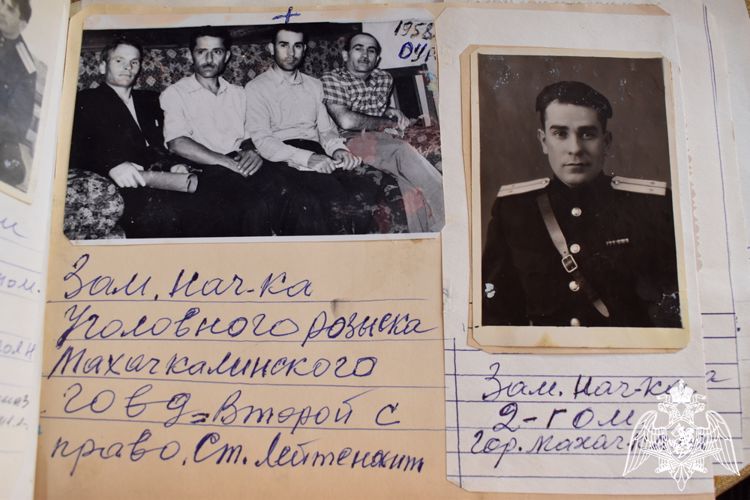 1958
ОУР
Зам. нач-ка
Уголовного розыска
Махачкалинского
ГОВД = Второй с
право. Ст. Лейтенант
Зам. нач-ка
2-ГОМ
гор. Махач